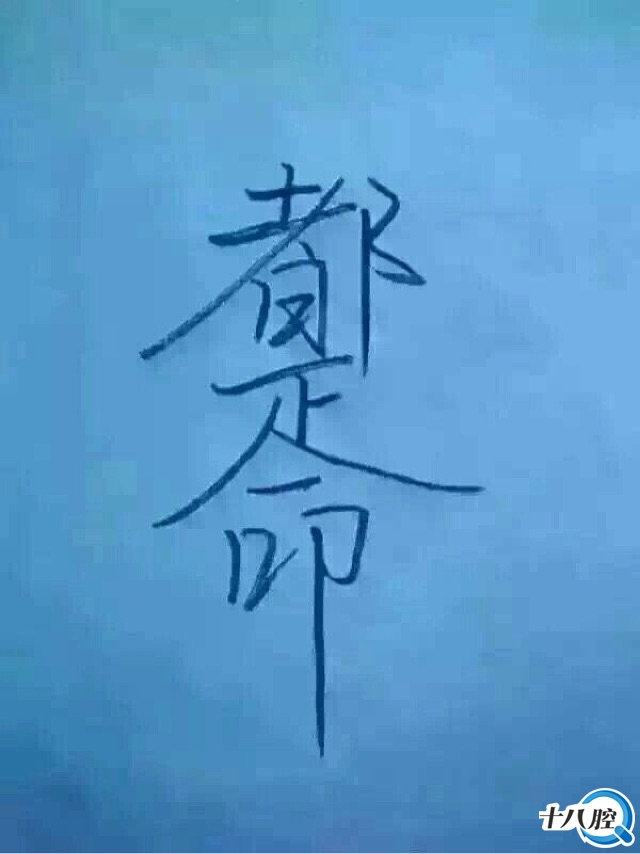 都是命
十八腔